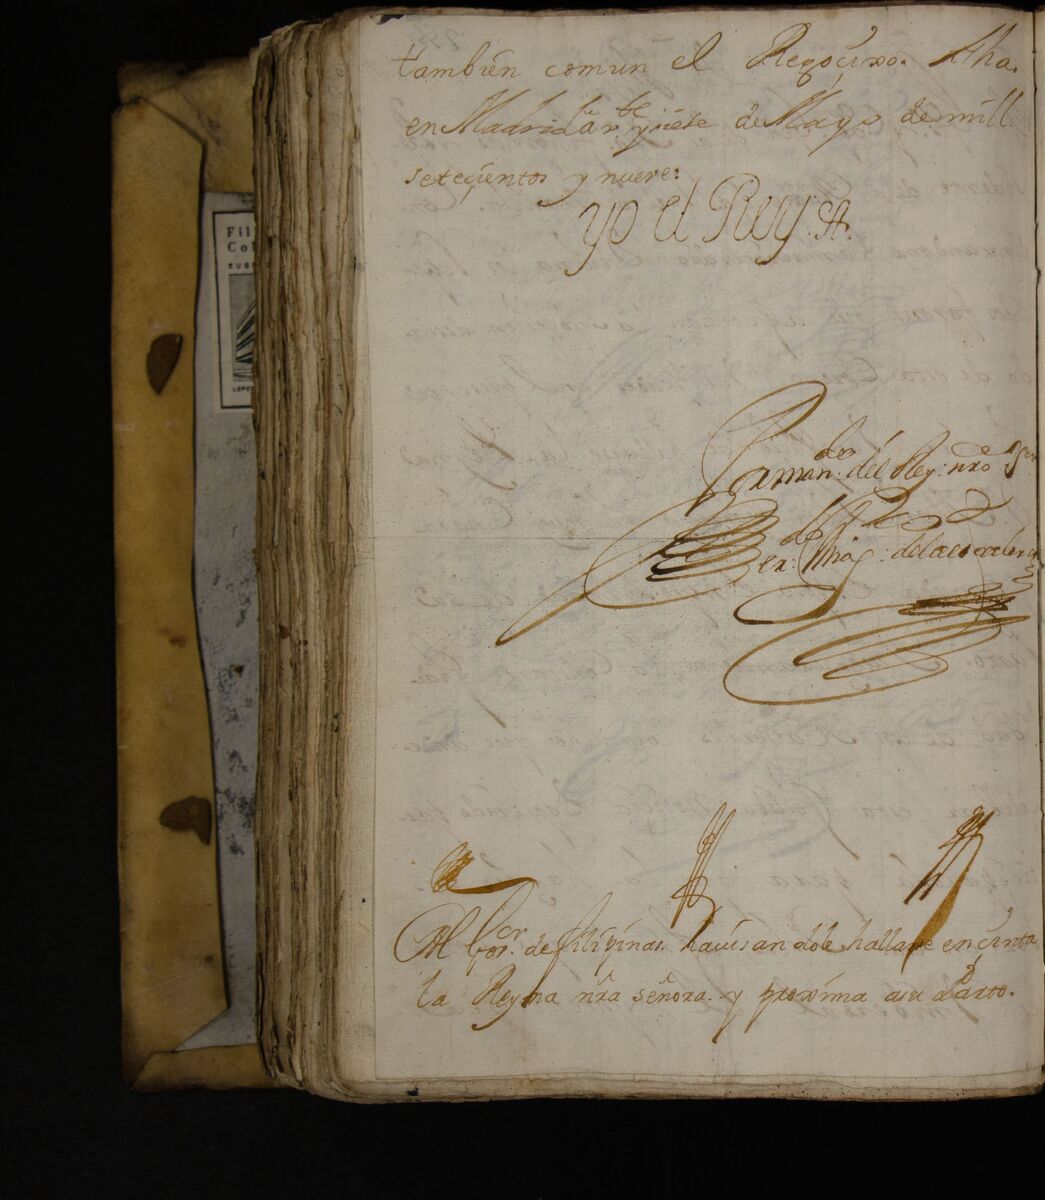 también comun el Regoçixo. fha.
en Madrid a veyte y siete de Mayo de mill
seteçientos y nueve:
yo el Rey
Por mando del Rey nro Sor
Al Gor. de filipinas. havisandole hallarse en çinta
la Reyna nrã señora. y proxima a su Parto.
Fil
Col
LOPE